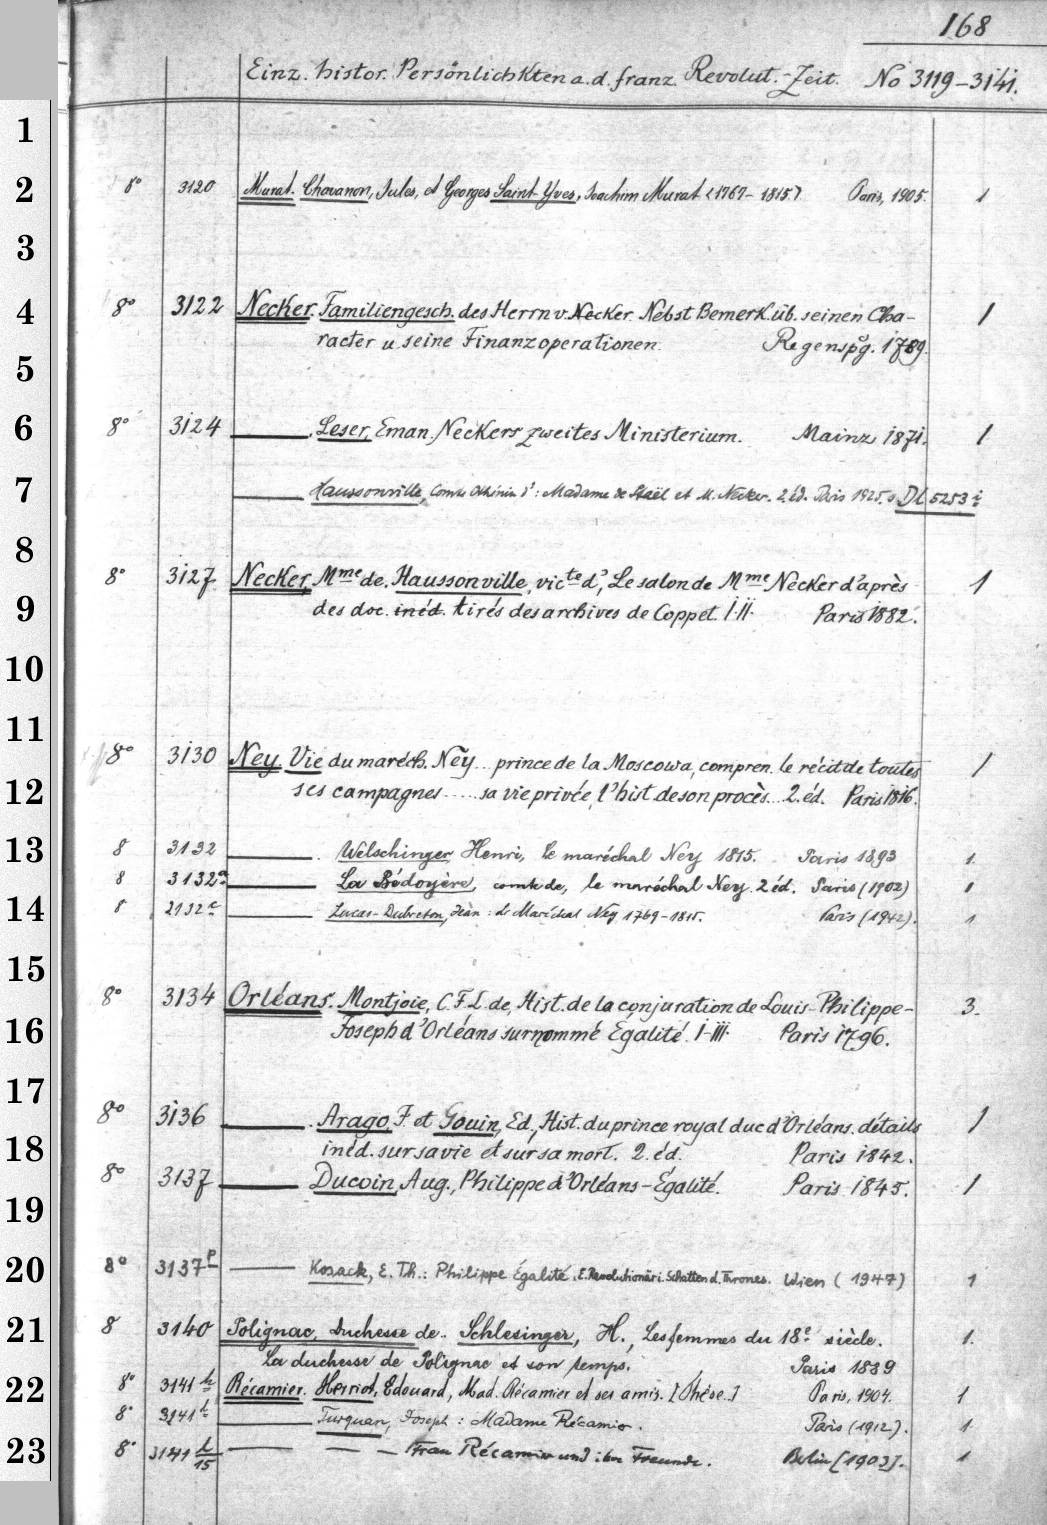 168
Einz. histor. Persönlichkten a. d. franz. Revolut.-Zeit. No 3119-3141.
1
2 8° 3120 Murat. Chavanon, Jules, et Georges Saint-Yves, Joachim Murat (1767-1815) Paris, 1905. 1
3
4 8° 3122 Necker. Familiengesch. des Herrn v. Necker. Nebst Bemerk. üb. seinen Cha-
racter u. seine Finanzoperationen. Regenspg. 1789. 1
5
6 8° 3124 ———. Leser, Eman. Neckers zweites Ministerium. Mainz 1871. 1
7 ——— Haussonville, Comte Othénin d': Madame de Staël et M. Necker. 2 éd. Paris 1925. s. Dl 5253 i
8
8° 3127 Necker, Mme de. Haussonville, victe d', Le salon de Mme Necker d'après 1
9 des doc. inéd. tirés des archives de Coppet. I-II. Paris 1882.
10
11
8° 3130 Ney. Vie du maréch. Ney... prince de la Moscowa, compren. le récit de toutes 1
12 ses campagnes ..... sa vie privée, l'hist de son procès... 2. éd. Paris 1816.
13 8 3132 ———. Welschinger Henri, le maréchal Ney 1815. Paris 1893 1.
8 3132a ——— La Bédoyère, comte de, le maréchal Ney. 2 éd. Paris (1902) 1
14 8 2132c ——— Lucas-Dubreton, Jean: Le Maréchal Ney 1769-1815. Paris (1942). 1
15
8° 3134 Orléans. Montjoie, C. F. L. de, Hist. de la conjuration de Louis-Philippe- 3.
16 Joseph d'Orléans surnommé Égalité. I-III. Paris 1796.
17
8° 3136 ———. Arago, F. et Gouin, Ed., Hist. du prince royal duc d'Orléans. détails 1
18 inéd. sur sa vie et sur sa mort. 2. éd. Paris 1842.
8° 3137 ——— Ducoin, Aug., Philippe d'Orléans-Égalité. Paris 1845. 1
19
20 8° 3137p ——— Kosack, E. Th.: Philippe Égalité. E. Revolutionär i. Schatten d. Thrones. Wien (1947) 1
21 8 3140 Polignac, Duchesse de. Schlesinger, H., Les femmes du 18e siècle. 1.
La duchesse de Polignac et son temps. Paris 1889
22 8° 3141 h Récamier. Herriot, Edouard, Mad. Récamier et ses amis. [Thèse.] Paris, 1904. 1
8° 3141 l ——— Turquan, Joseph: Madame Récamier. Paris (1912). 1.
23 8° 3141 l/15 ——— — — Frau Récamier und ihre Freunde. Berlin [1903]. 1